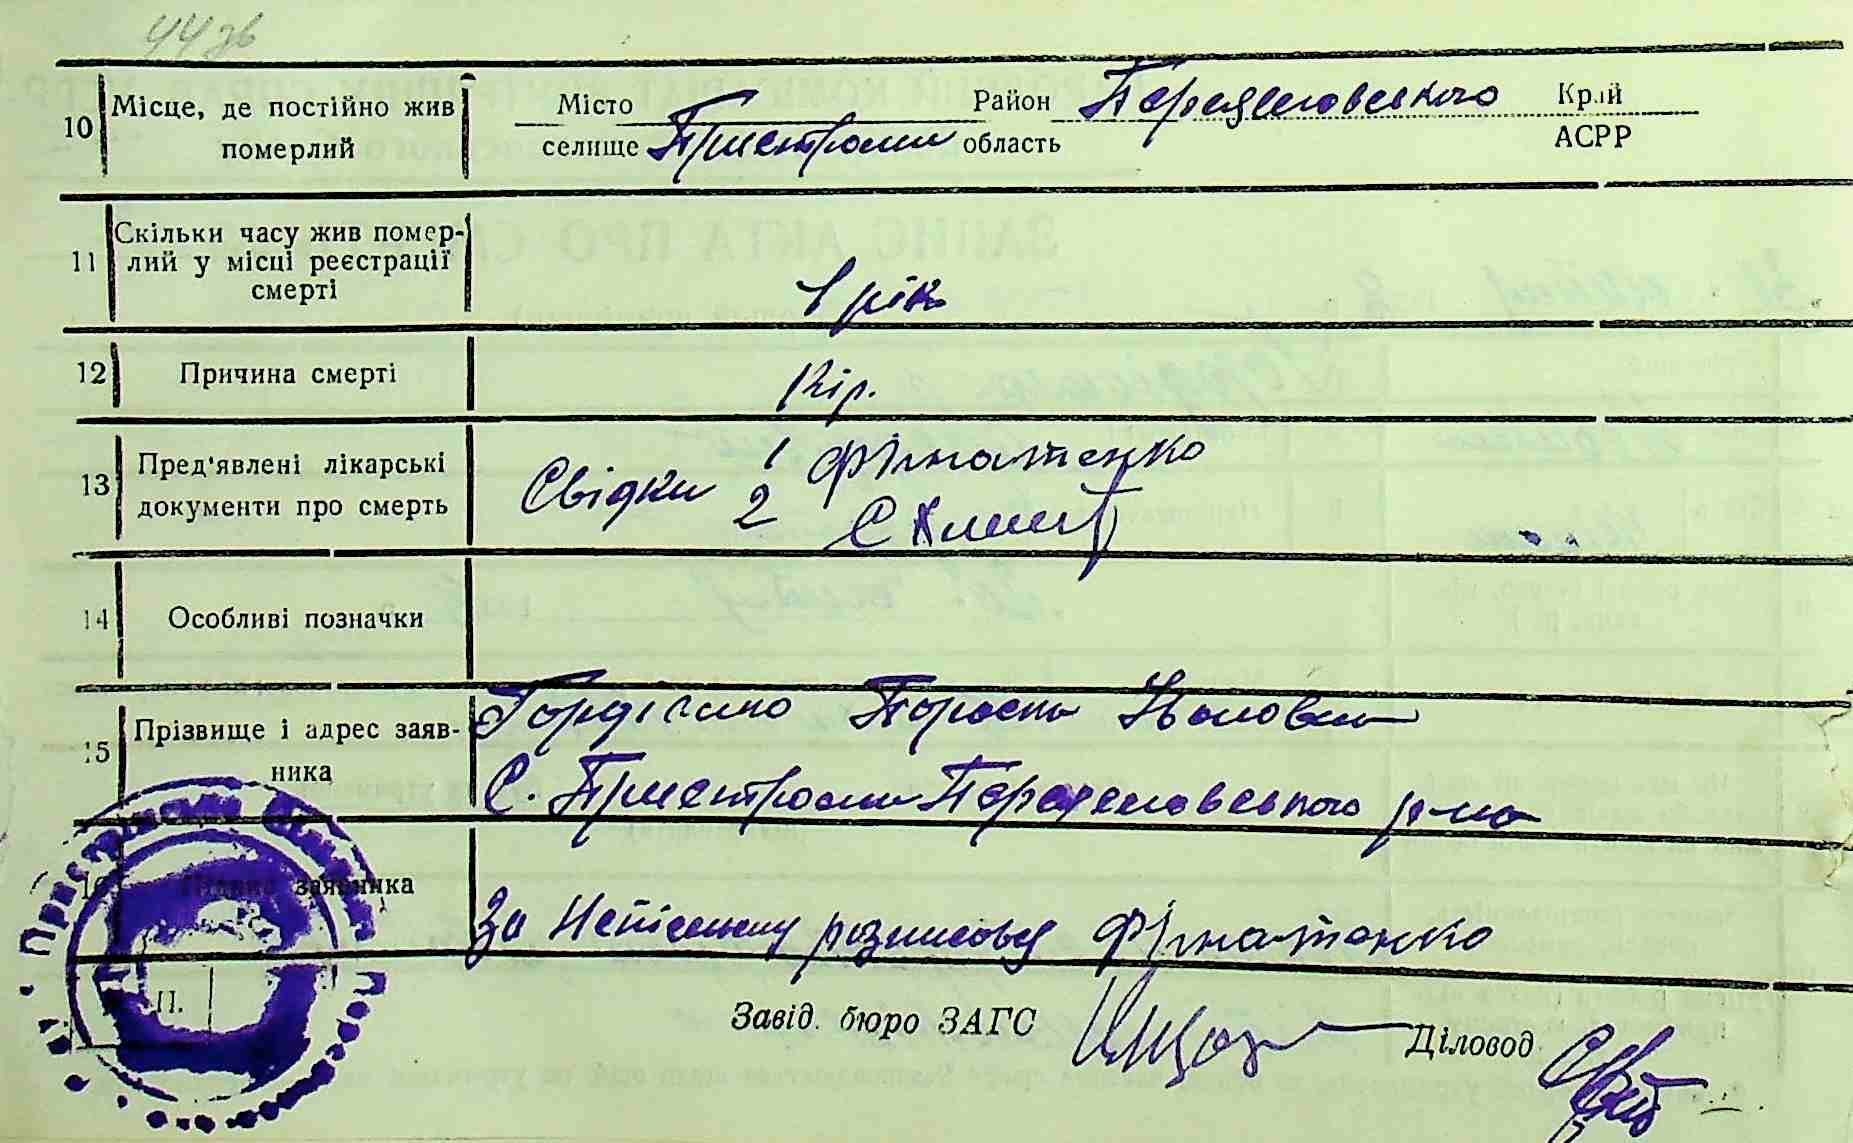 44 зв
10 Місце, де постійно жив померлий
Місто Район Переяславського Край
селище Пристроми область АСРР
11 Скільки часу жив помер-
лий у місці реєстрації
смерті
1 рік
12 Причина смерті Кір.
13 Пред'явлені лікарські
документи про смерть
Свідки 1 Ф Ігнатенко
2 С
14 Особливі позначки
15 Прізвище і адрес заяв-
ника
Параска
С. Пристроми Переяславського р-на
16 Підпис заявника
За Неписьмену розписовся Ф Ігнатенко
П.
Завід. бюро ЗАГС Діловод